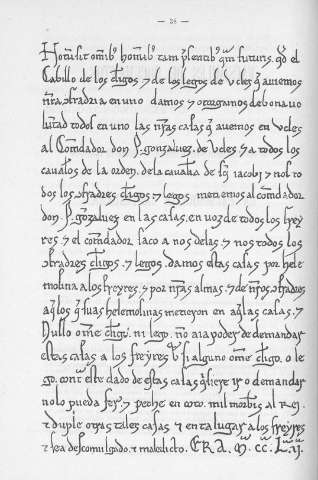 — 38 —
Notū sit omīb; homīb; tam p̄sentib; q̄m futuris. q̄d el
Cabillo de los cl̄igos ⁊ de los legos de Vcles q̄ auemos
nr̄a ꝯfradria en uno damos ⁊ otorgamos de bona uo
lūtad todos en uno las nr̄as casas q̄ auemos en Vcles
al Comēdador don P. gonzaluez. de Vcles ⁊ a todos los
caual̄os de la orden. de la caualīa de sc̄i iacobi ⁊ nos to
dos los ꝯfradres cl̄igos ⁊ legos metemos al comēdador
don P. gōzaluez en las casas. en uoz de todos los frey
res. ⁊ el comēdador saco a nos delas. ⁊ nos todos los
ꝯfradres cl̄igos. ⁊ legos. damos estas casas por hele
mosina a los freyres. ⁊ por nr̄as almas. ⁊ de nr̄os ꝯfradres
aq̄los q̄ suas helemosinas metieron en aq̄las casas. ⁊
Nullo om̄e cl̄igo. ni lego. nō aia poder de demandar
estas casas a los freyres ⁊ si alguno om̄e cl̄igo. o le
go. ꝯtra este dado de estas casas q̄siere ir o demandar
no lo pueda fer. ⁊ peche en coto. mil morabīs al Rei.
⁊ duple otras tales casas ⁊ en tal lugar a los freyres
⁊ sea descomulgado. ⁊ maledicto. ERA. M. CC. L. II.